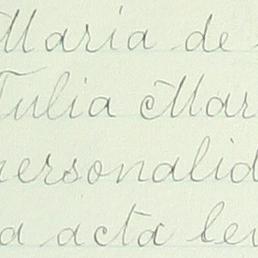 Maria de
Tulia Mar
personalid
a acta le